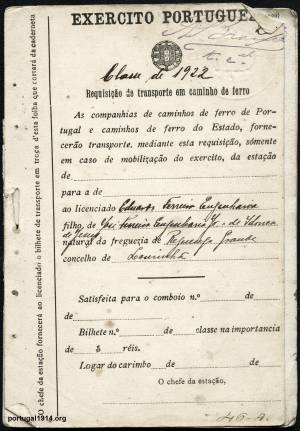 EXERCITO PORTUGUEZ
Classe de 1922
Requisição de transporte em caminho de ferro
As companhias de caminhos de ferro de Por-
tugal e caminhos de ferro do Estado, forne-
cerão transporte, mediante esta requisição, sómente
em caso de mobilização do exercito, da estação
de
para a de
ao licenciado Eduardo Ferreira
filho, de José Ferreira e de
de Jesus
natural da freguezia de Grande
concelho de Lourinhã
Satisfeita para o comboio n.º de de
Bilhete n.º de classe na importancia
de $ réis.
Logar do carimbo de de
O chefe da estação,
O chefe da estação fornecerá ao licenciado o bilhete de transporte em troca d'esta folha que cortará da caderneta
portugal1914.org